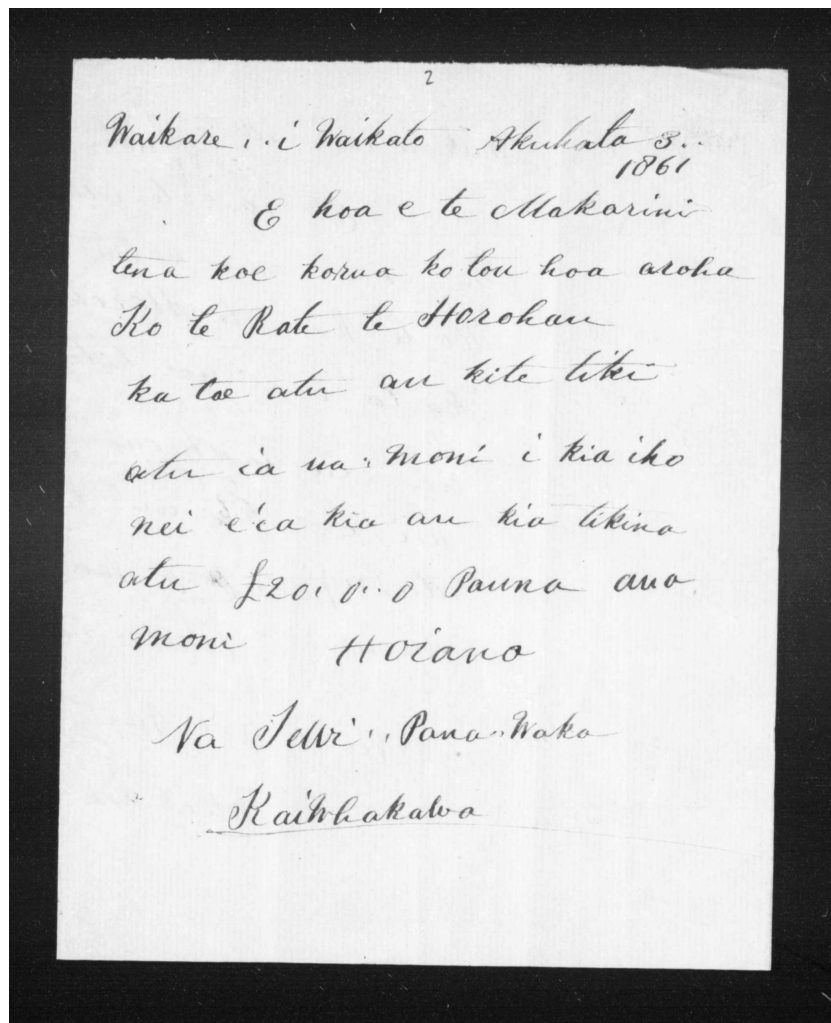 2
Waikare . . i Waikato Akuhata 3 . .
1861
E hoa e te Makarini
tena koe korua ko tou hoa aroha
Ko te Rate te Horohau
ka toe atu au kite tiki
atu ia na . Moni i kia iho
nei e ia kia au kia tikina
atu £20 . 0 . . 0 Pauna ana
moni Hoiano
Na . . Pana . Waka
KaiWhakaWa